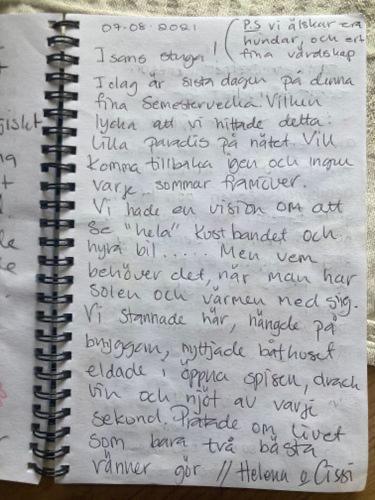 07.08.2021
I sans stuga!
(P.S vi älskar era
hundar, och ert
fina värdskap
Idag är sista dagen på denna
fina semestervecka. Vilken
lycka att vi hittade detta
lilla paradis på nätet. Vill
komma tillbaka igen och ingen
varje sommar framöver.
Vi hade en vision om att
se "hela" kustbandet och
hyra bil..... Men vem
behöver det, när man har
solen och värmen med sig.
Vi stannade här, hängde på
bryggan, nyttjade båthuset
eldade i öppna spisen, drack
vin och njöt av varje
sekund. Pratade om livet
som bara två bästa
vänner gör // Helena & Cissi